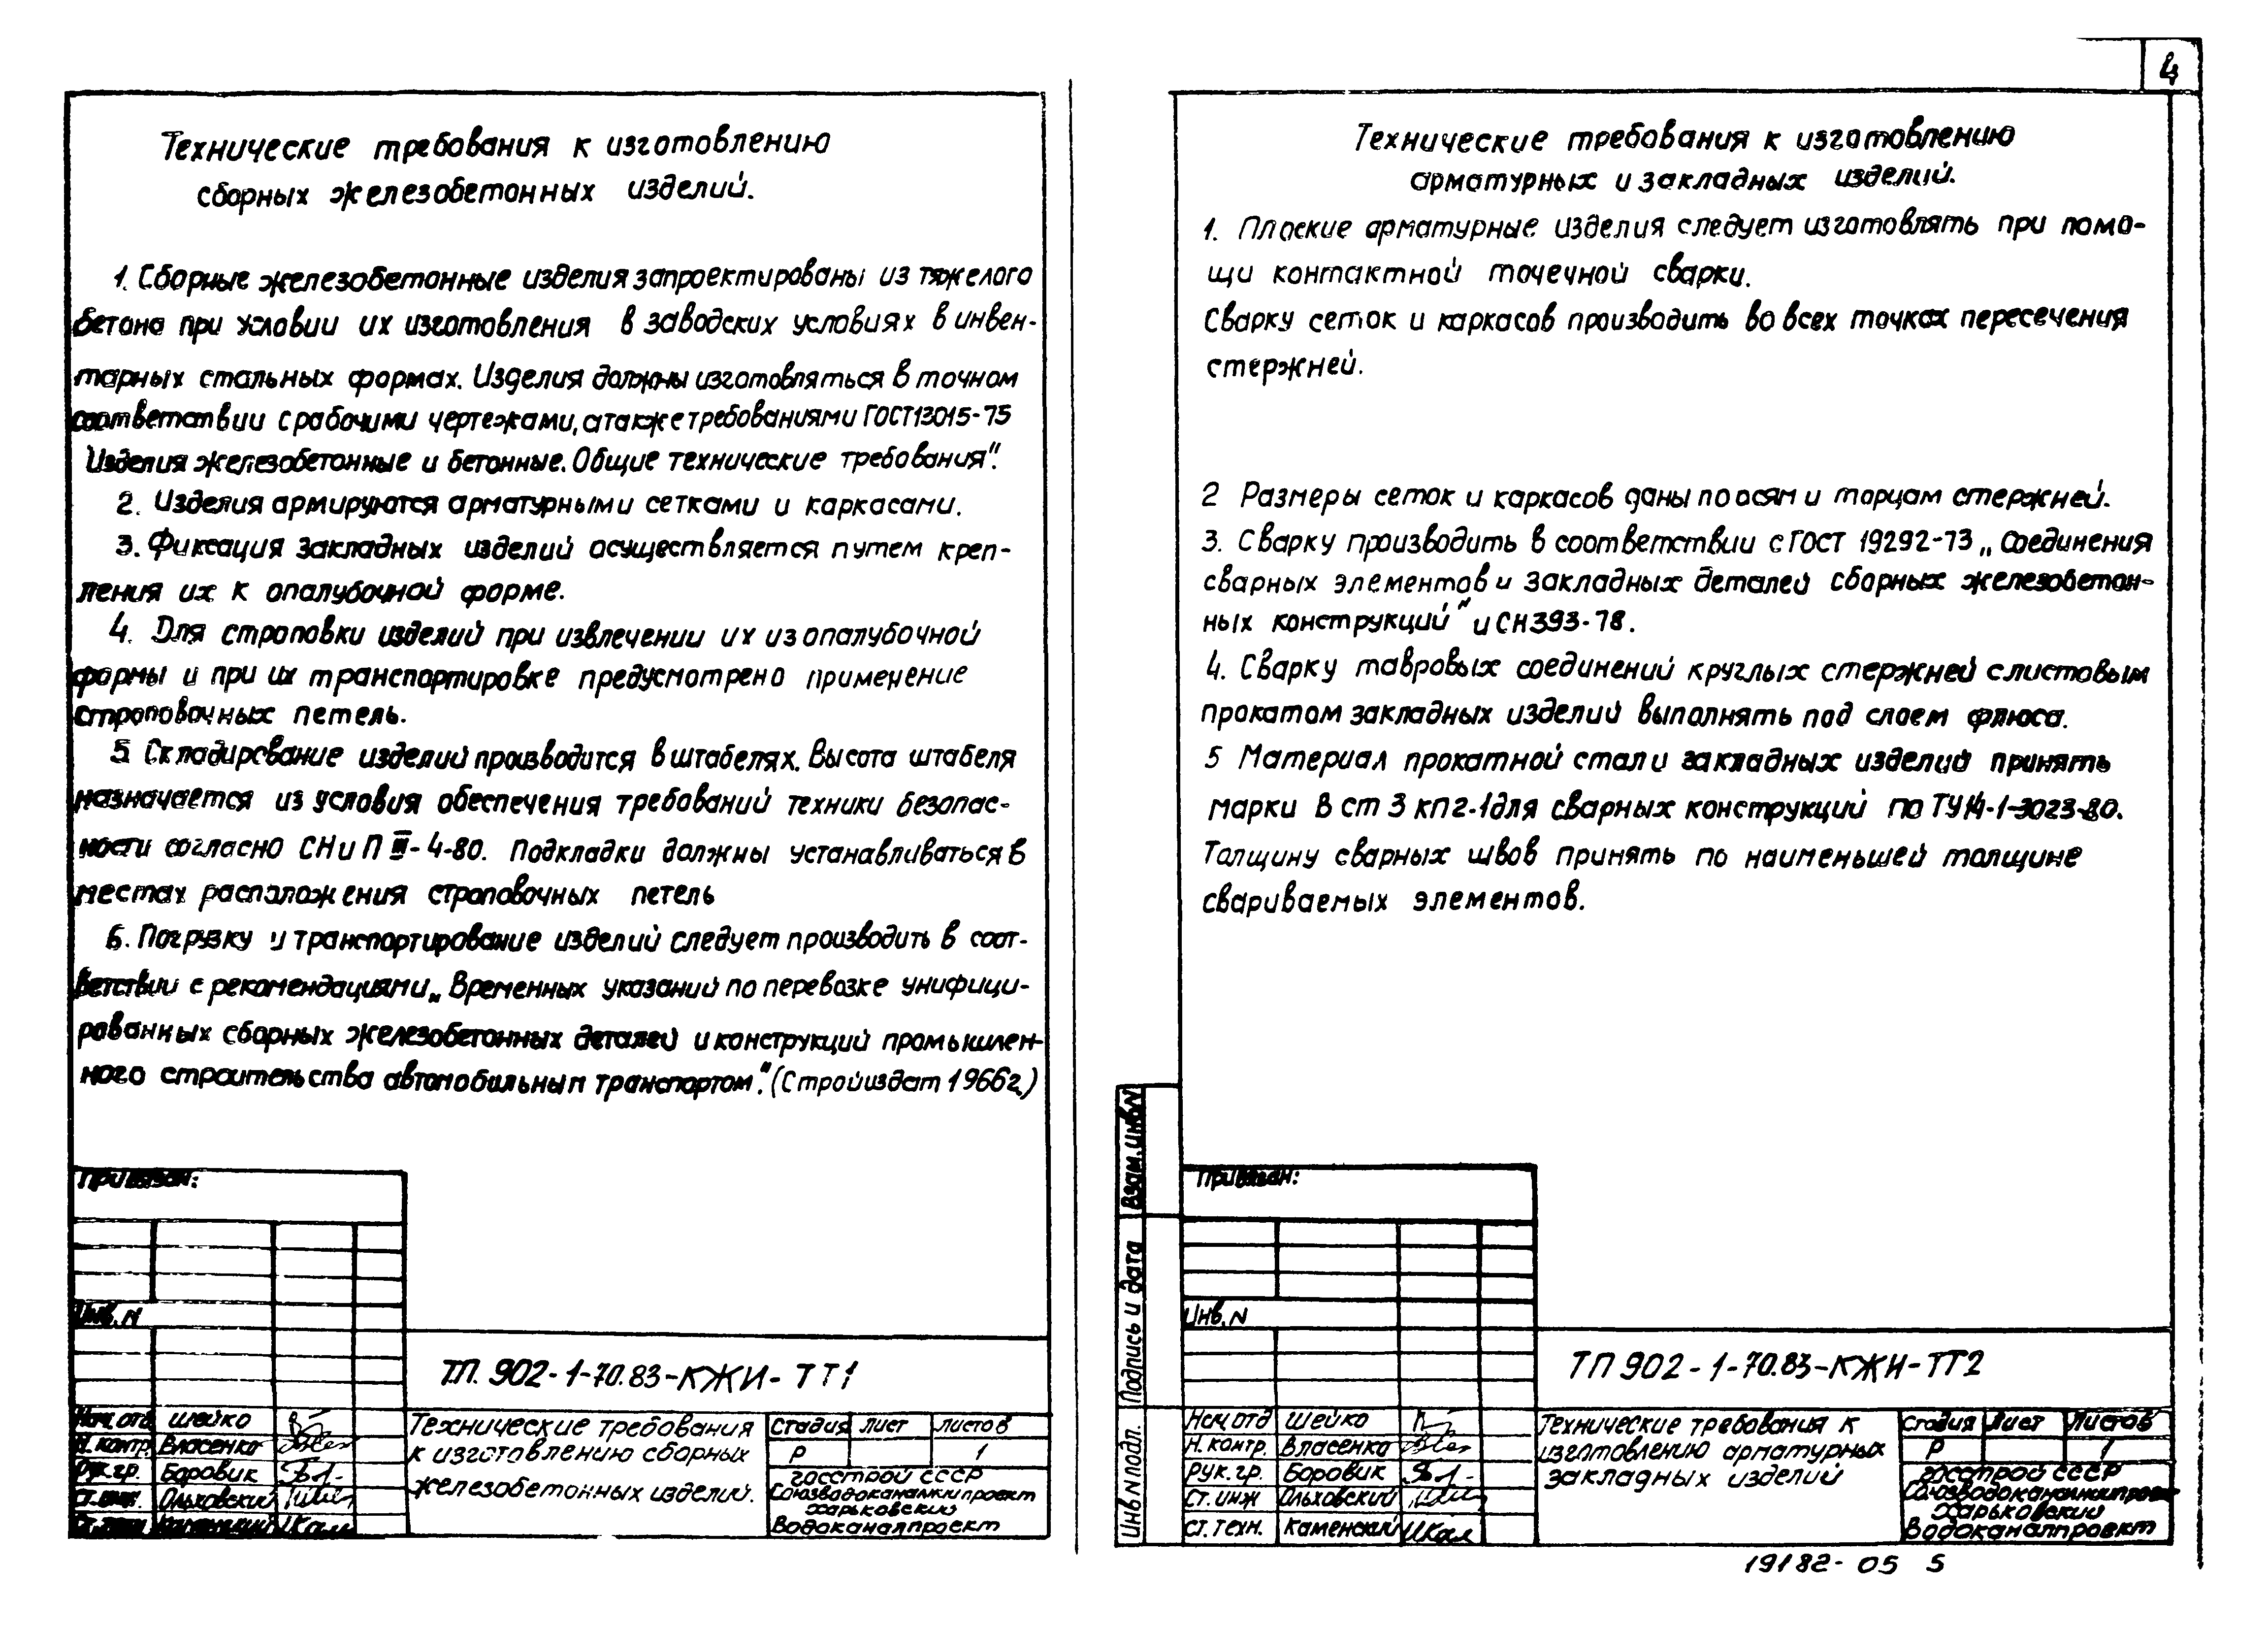 4
Технические требования к изготовлению
сборных железобетонных изделий.
1. Сборные железобетонные изделия запроектированы из тяжелого
бетона при условии их изготовления в заводских условиях в инвен-
тарных стальных формах. Изделия должны изготовляться в точном
соответствии с рабочими чертежами, а также требованиями ГОСТ 13015-75
Изделия железобетонные и бетонные. Общие технические требования".
2. Изделия армируются арматурными сетками и каркасами.
3. Фиксация закладных изделий осуществляется путем креп-
ления их к опалубочной форме.
4. Для строповки изделий при извлечении их из опалубочной
формы и при их транспортировке предусмотрено применение
строповочных петель.
5. Складирование изделий производится в штабелях. Высота штабеля
назначается из условия обеспечения требований техники безопас-
ности согласно СНиП III-4-80. Подкладки должны устанавливаться в
местах расположения строповочных петель
6. Погрузку и транспортирование изделий следует производить в соот-
ветствии с рекомендациями „Временных указаний по перевозке унифици-
рованных сборных железобетонных деталей и конструкций промышлен-
ного строительства автомобильным транспортом." (Стройиздат 1966г.)
Привязан:
Инв. N
ТП. 902-1-70.83-КЖИ-ТТ1
Нач. отд. Шейко
Н. контр. Власенко
Рук. гр. Боровик
Ст. инж. Ольховский
Ст. техн. Каменский
Технические требования
к изготовлению сборных
железобетонных изделий.
Стадия Лист Листов
Р 1
Госстрой СССР
Союзводоканалниипроект
Харьковский
Водоканалпроект
Технические требования к изготовлению
арматурных и закладных изделий.
1. Плоские арматурные изделия следует изготовлять при помо-
щи контактной точечной сварки.
Сварку сеток и каркасов производить во всех точках пересечения
стержней.
2 Размеры сеток и каркасов даны по осям и торцам стержней.
3. Сварку производить в соответствии с ГОСТ 19292-73 „Соединения
сварных элементов и закладных деталей сборных железобетон-
ных конструкций" и СН 393-78.
4. Сварку тавровых соединений круглых стержней с листовым
прокатом закладных изделий выполнять под слоем флюса.
5 Материал прокатной стали закладных изделий принять
марки В Ст 3 кп2-1 для сварных конструкций по ТУ 14-1-3023-80.
Толщину сварных швов принять по наименьшей толщине
свариваемых элементов.
Взам. инв. N
Подпись и дата
Инв N подл.
Привязан:
Инв. N
ТП 902-1-70.83-КЖИ-ТТ2
Нач. отд Шейко
Н. контр. Власенко
Рук. гр. Боровик
Ст. инж Ольховский
Ст. техн. Каменский
Технические требования к
изготовлению арматурных
закладных изделий
Стадия Лист Листов
Р 1
Госстрой СССР
Союзводоканалниипроект
Харьковский
Водоканалпроект
19182-05 5